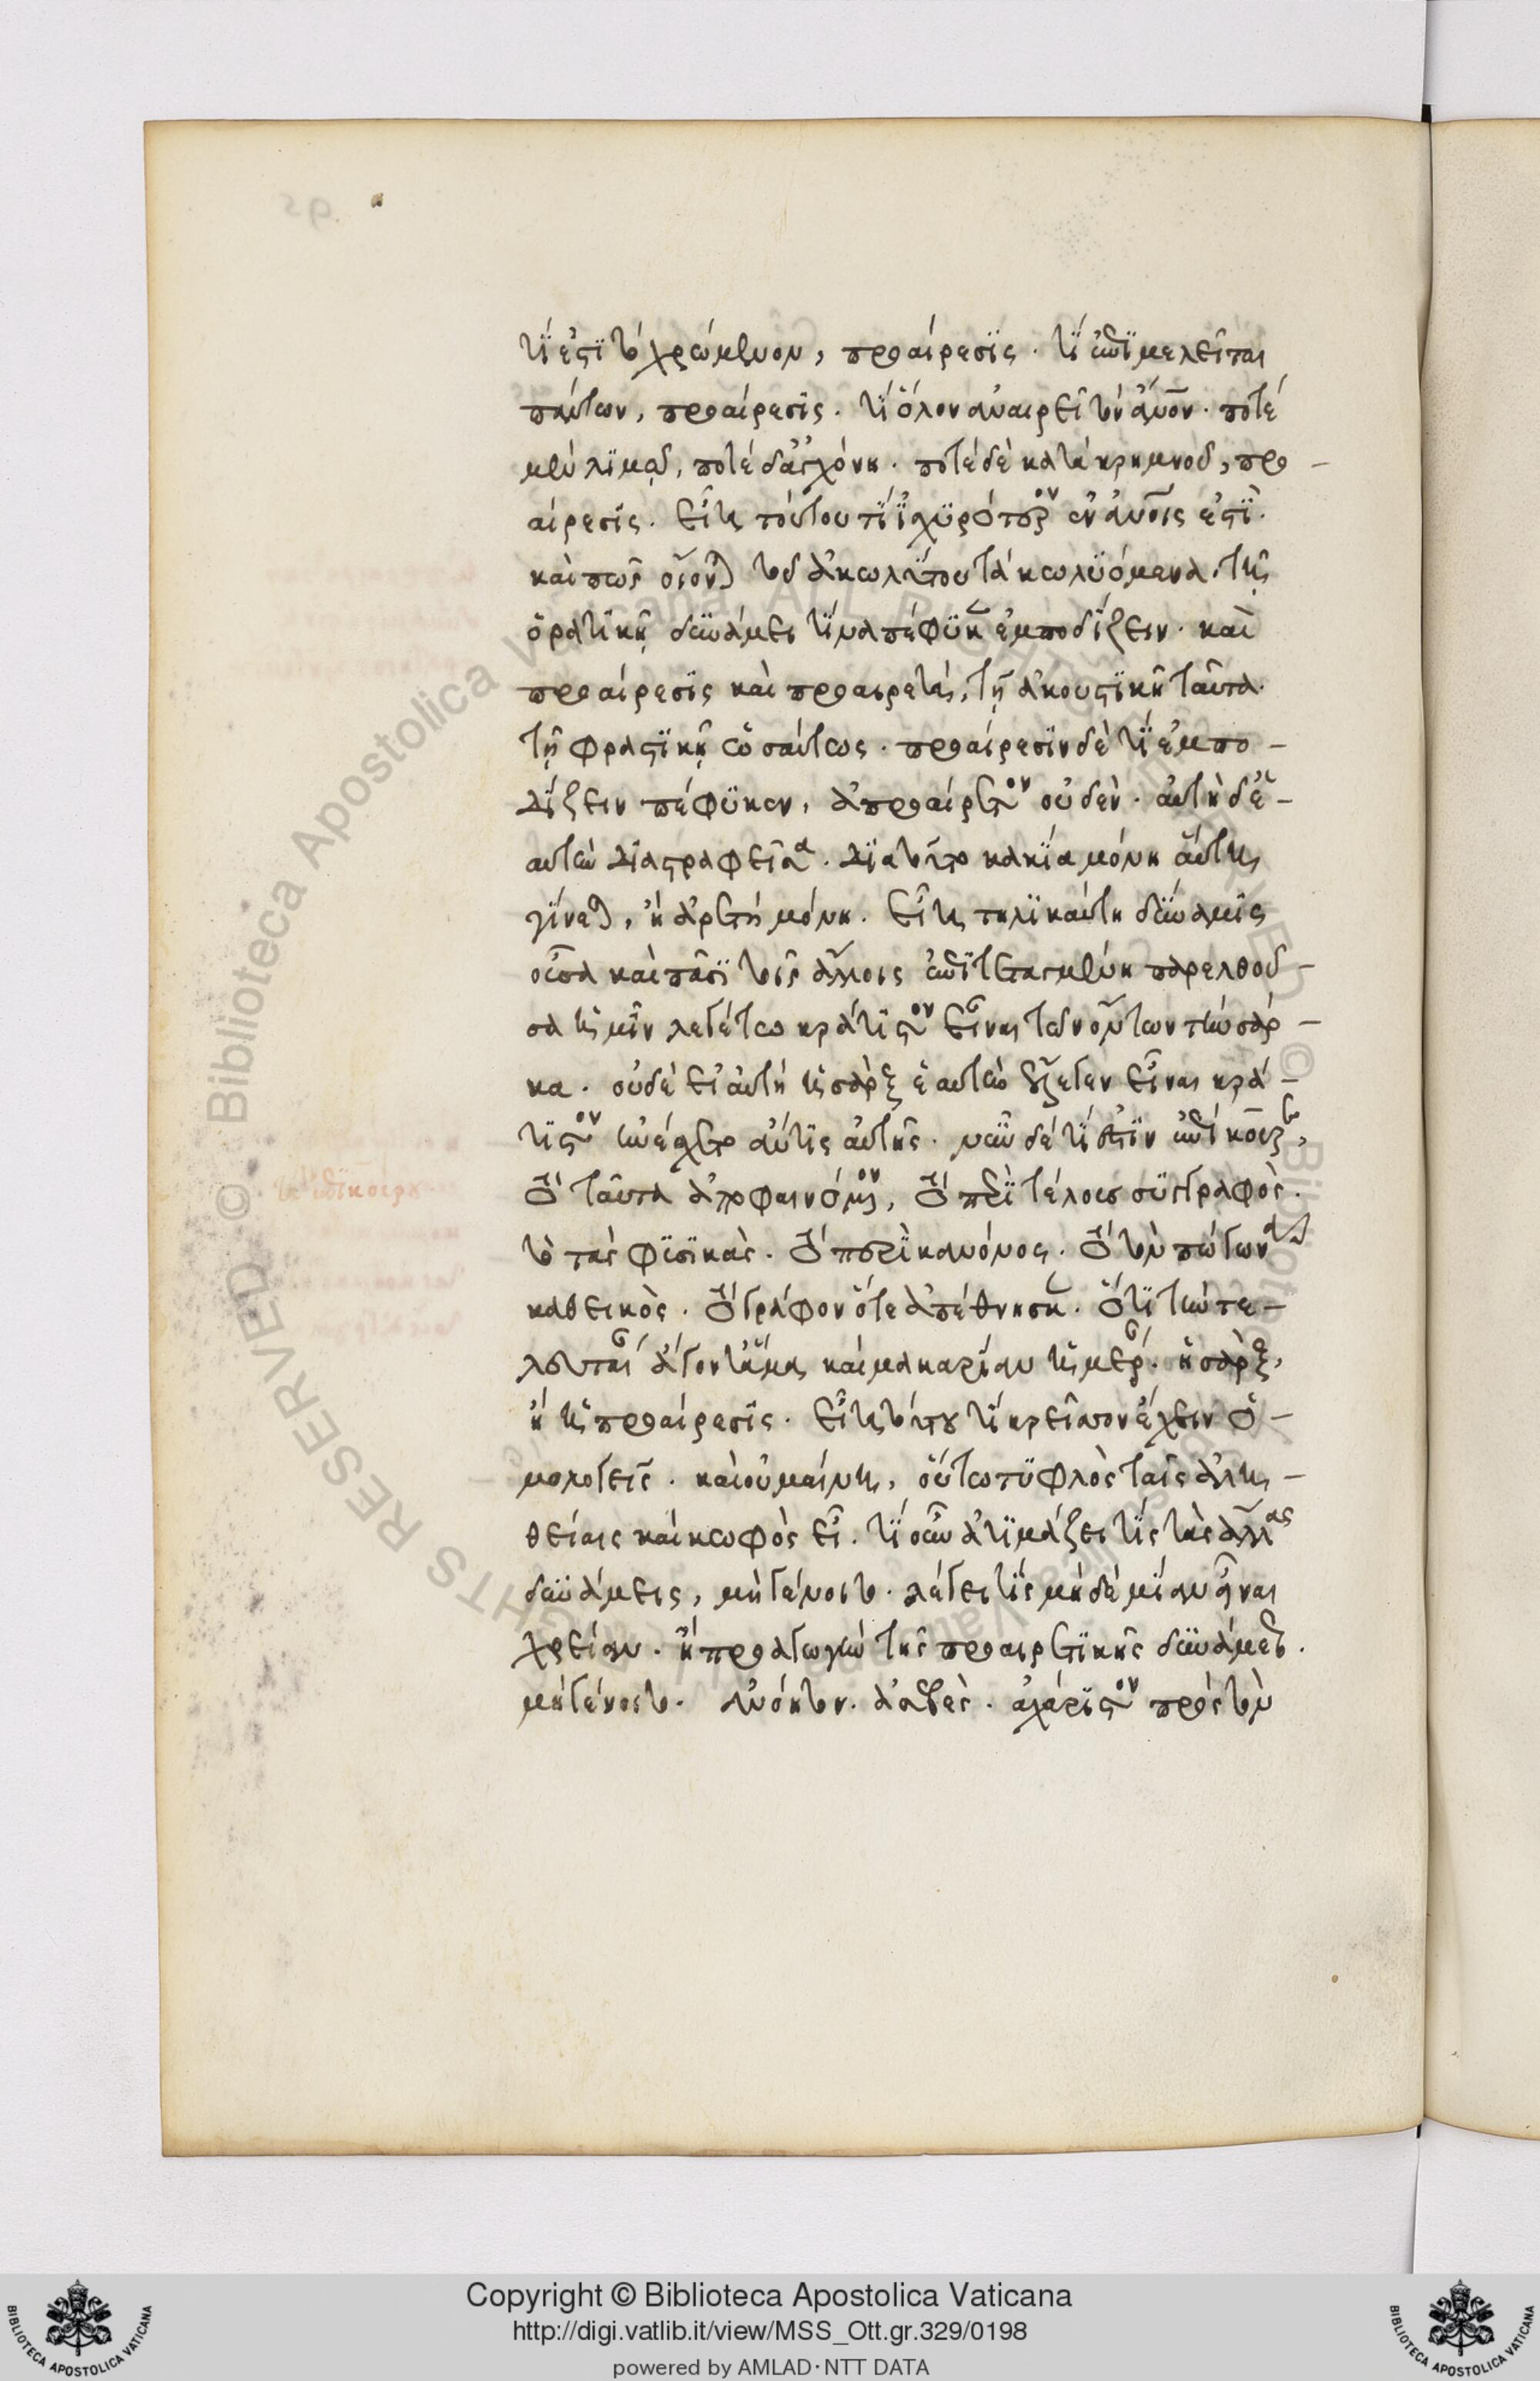 τί ἐστι τὸ χρώμενον, προαίρεσις. τί ἐπιμελεῖται
πάντων, προαίρεσις. τί ὅλον ἀναιρεῖ τὸν ἄνον. ποτὲ
μὲν λιμῷ, ποτὲ δ' ἀγχόνη. ποτὲ δὲ κατὰ κρημνοῦ, προ-
αίρεσις. εἶτα τούτου τί ἰσχυρότερον ἐν ἀνοις ἐστί.
καὶ πῶς οἷόν τε τοῦ ἀκωλύτου τὰ κωλυόμενα. τῇ
ὁρατικῇ δυνάμει τίνα πέφυκεν ἐμποδίζειν. καὶ
προαίρεσις καὶ προαιρετά, τῇ ἀκουστικῇ ταῦτα.
τῇ φραστικῇ ὡσαύτως. προαίρεσιν δὲ τί ἐμπο-
δίζειν πέφυκεν, ἀπροαίρετον οὐδέν. αὐτὴ δ' ἑ-
αυτὴν διαστραφεῖσα. διὰ τοῦτο κακία μόνη αὕτη
γίνεται, ἢ ἀρετὴ μόνη. εἶτα τηλικαύτη δύναμις
οὖσα καὶ πᾶσι τοῖς ἄλλοις ἐπιτεταγμένη παρελθοῦ-
σα ἡμῖν λεγέτω κράτιστον εἶναι τῶν ὄντων τὴν σάρ-
κα. οὐδὲ εἰ αὐτὴ ἡ σὰρξ ἑαυτὴν ἔλεγεν εἶναι κρά-
τιστον ἠνέσχετο ἄν τις αὐτῆς. νῦν δὲ τί ἐστιν ἐπίκουρε,
τὸ ταῦτα ἀποφαινόμενον, τὸ περὶ τέλους συγγεγραφός.
τὸ τὰς φυσικάς. τὸ περὶ κανόνος. τὸ τὸν πώγωνα
καθεικός. τὸ γράφον ὅτε ἀπέθνησκεν. ὅτι τὴν τε-
λευταίαν ἄγοντες ἅμα καὶ μακαρίαν ἡμέραν. ἡ σάρξ,
ἢ ἡ προαίρεσις. εἶτα τούτου τί κρεῖσσον ἔχειν ὁ-
μολογεῖς. καὶ οὐ μαίνῃ, οὕτω τυφλὸς ταῖς ἀλη-
θείαις καὶ κωφὸς εἶ. τί οὖν ἀτιμάζει τίς τὰς ἄλλας
δυνάμεις, μὴ γένοιτο. λέγει τίς μηδεμίαν εἶναι
χρείαν. ἢ προαγωγὴν τῆς προαιρετικῆς δυνάμεως.
μὴ γένοιτο. ἀνόητον. ἀσεβές. ἀχάριστον πρὸς τὸν
Copyright © Biblioteca Apostolica Vaticana
http://digi.vatlib.it/view/MSS_Ott.gr.329/0198
powered by AMLAD·NTT DATA